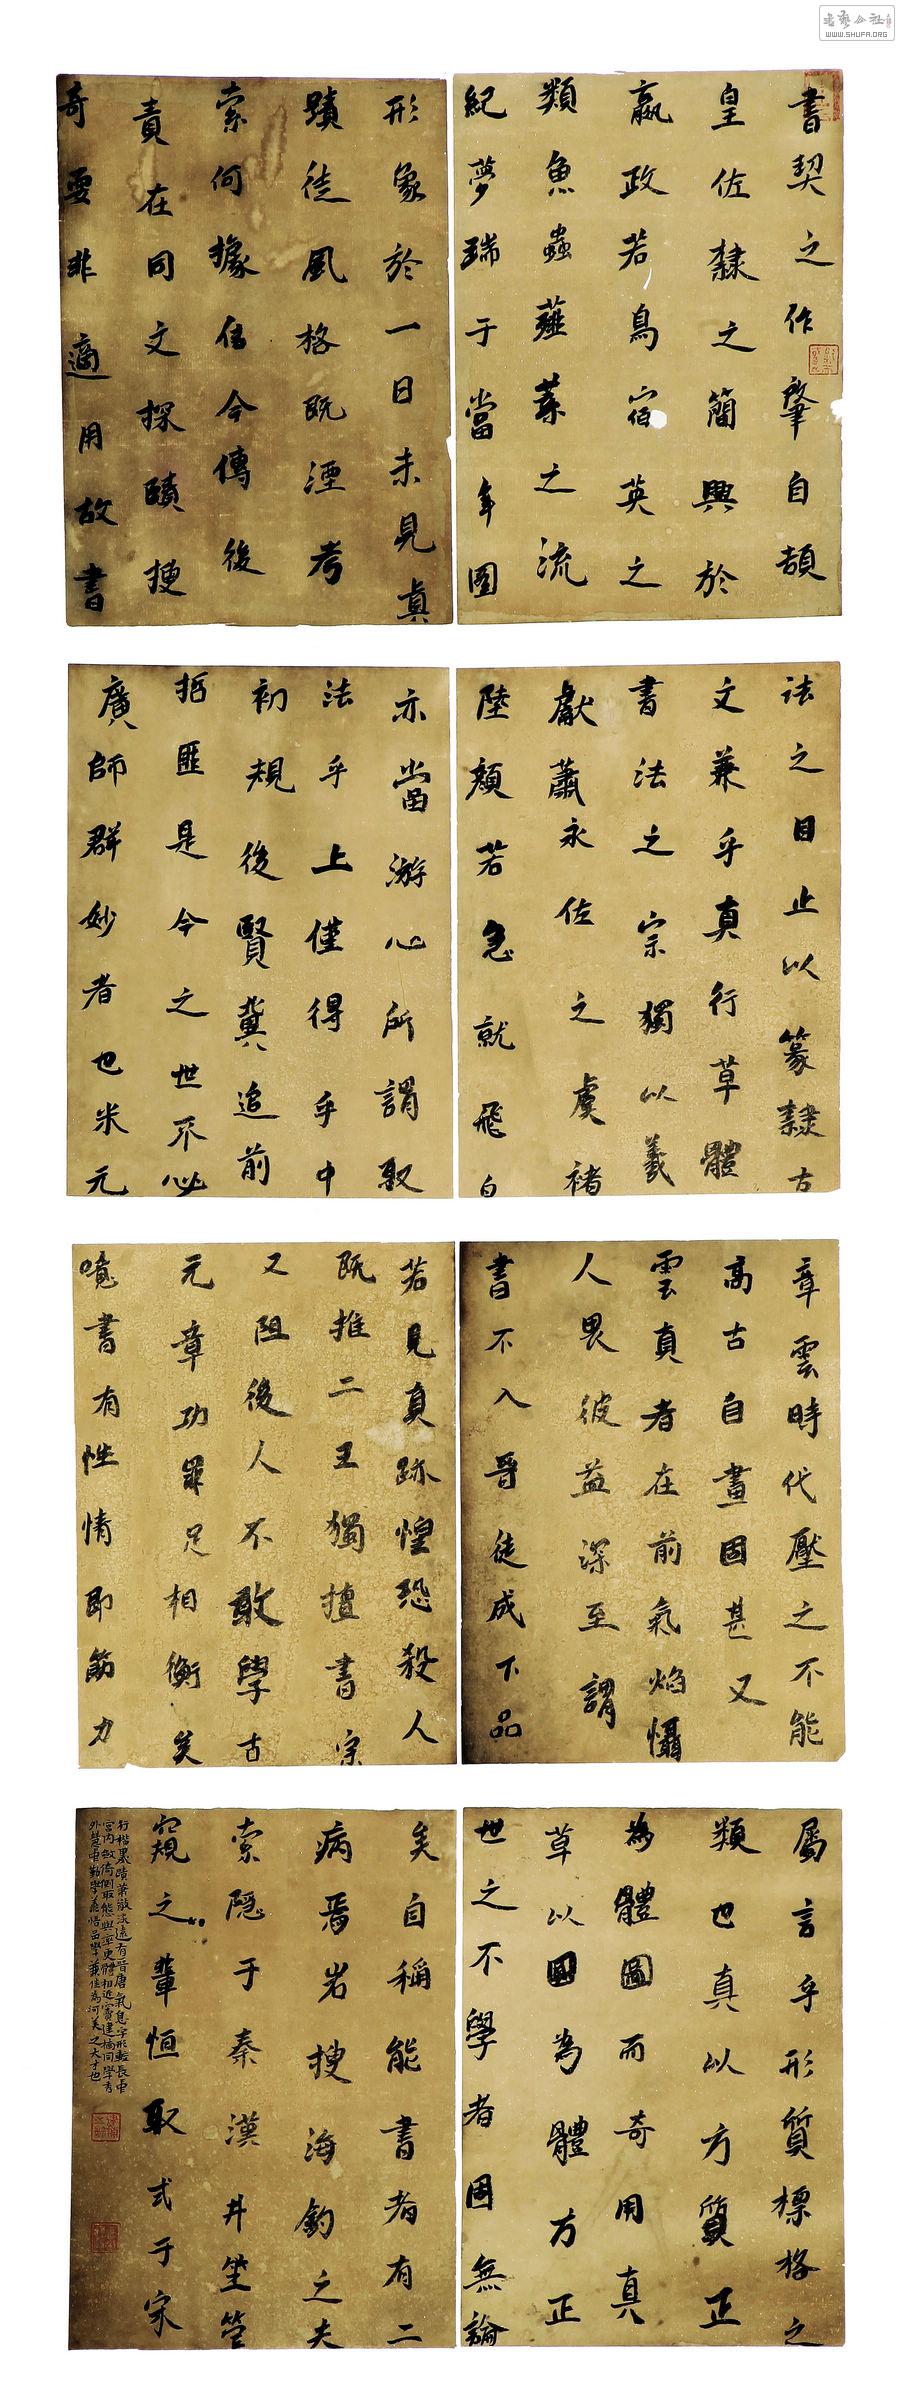 書契之作肇自頡
皇佐隸之簡興於
嬴政若鳥宿英之
類魚蟲薤葉之流
紀夢瑞于當年圖
形象於一日未見真
蹟徒風格既湮考
索何據信今傳後
責在同文探賾搜
奇要非適用故書
法之目止以篆隸古
文兼乎真行草體
書法之宗獨以羲
獻蕭永佐之虞褚
陸顏若急就飛白
亦當游心所謂取
法乎上僅得乎中
初規後賢冀追前
哲匪是今之世不必
廣師群妙者也米元
章云時代壓之不能
高古自畫固甚又
云真者在前氣焰懾
人畏彼益深至謂
書不入晉徒成下品
若見真跡惶恐殺人
既推二王獨擅書宗
又阻後人不敢學古
元章功罪足相衡矣
噫書有性情即筋力
屬言乎形質標格之
類也真以方質正
為體圖而奇用真
草以圓為體方正
世之不學者固無論
矣自稱能書者有二
病焉岩搜海釣之夫
索隱于秦漢井坐管
窺之輩恒取式于宋
行楷墨蹟蕭散淡遠有晉唐氣息字形較長中
宮內斂倚側取態與率更體相近
外慧中勤學兼
WWW.SHUFA.ORG